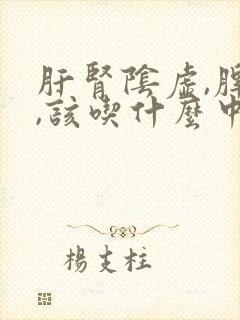 肝腎陰虛,脾
,該喫什麼中
楊支柱